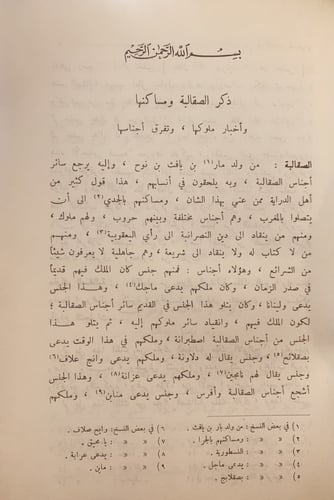 بسم الله الرحمن الرحيم
ذكر الصقالبة ومساكنها
وأخبار ملوكها ، وتفرق أجناسها
الصقالبة : من ولد مار(١) بن يافث بن نوح ، وإليه يرجع سائر
أجناس الصقالبة ، وبه يلحقون في أنسابهم ، هذا قول كثير من
أهل الدراية ممن عني بهذا الشان ، ومساكنهم بالجدي(٢) الى أن
يتصلوا بالمغرب ، وهم أجناس مختلفة وبينهم حروب ، ولهم ملوك ،
ومنهم من ينقاد الى دين النصرانية الى رأي اليعقوبية(٣) ، ومنهم
من لا كتاب له ولا ينقاد الى شريعة ، وهم جاهلية لا يعرفون شيئاً
من الشرائع ، وهؤلاء أجناس : فمنهم جنس كان الملك فيهم قديماً
في صدر الزمان ، وكان ملكهم يدعى ماجك(٤) ، وهذا الجنس
يدعى ولينانا ، وكان يتلو هذا الجنس في القديم سائر أجناس الصقالبة ؛
لكون الملك فيهم ، وانقياد سائر ملوكهم إليه ، ثم يتلو هذا
الجنس من أجناس الصقالبة اصطبرانة ، وملكهم في هذا الوقت يدعى
بصقلائح(٥)، وجنس يقال له دلاونة ، وملكهم يدعى وانج علاف(٦)
وجنس يقال لهم نامجين(٧) ، وملكهم يدعى عزانة(٨) ، وهذا الجنس
أشجع أجناس الصقالبة وأفرس ، وجنس يدعى منابن(٩) ، وملكهم
١) في بعض النسخ: من ولد بار بن يافث .
٢) » » » : ومساكنهم بالجرا .
٣) » » » : النسطورية .
٤) » » » : يدعى ماجل .
٥) » » » : بصقلابج .
٦) في بعض النسخ: وايح صلاف .
٧) » » » : يا محيق .
٨) » » » : يدعى عرابة .
٩) » » » : ماين .